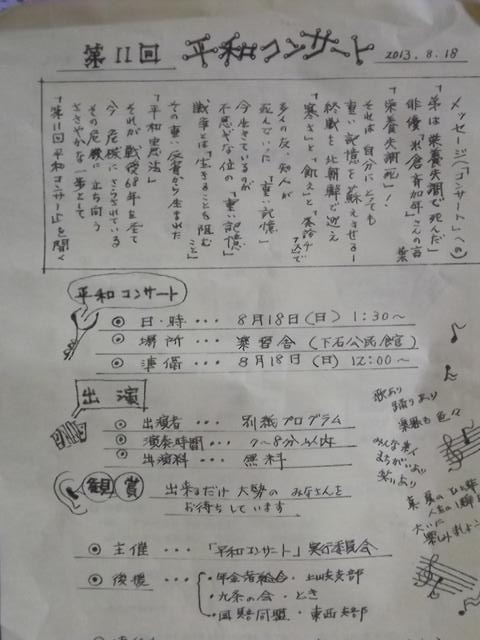 第11回 平和コンサート 2013.8.18
メッセージ(「コンサート」への)
「弟は栄養失調で死んだ」
俳優「米倉斉加年」さんの言葉
「栄養失調死」!
それは自分にとっても
重い記憶を蘇えさせる―
終戦を北朝鮮で迎え
「寒さ」と「飢え」と「発疹チフス」で
多くの友、知人が
死んでいった「重い記憶」
今生きているが
不思ギな位の「重い記憶」
戦争とは「生きることを阻むこと」
その重い反省から生まれた
「平和憲法」
それが戦後68年を経て
今 危機にさらされている
その危機に立ち向う
ささやかな一歩として
「第11回平和コンサート」を開く
平和コンサート
◎ 日・時 ・・・ 8月18日(日) 1:30〜
◎ 場所 ・・・ 楽習舎 (下石公民館)
◎ 準備 ・・・ 8月18日 (日) 12:00〜
出演
◎ 出演者 ・・・ 別紙プログラム
◎ 演奏時間 ・・・ 7〜8分以内
◎ 出演料 ・・・ 無料
歌あり
踊りあり
楽器も色々
みんな笑い
まちがいあり
笑いあり
観賞
出来るだけ 大勢の みなさんを
お待ちしています
大いに
楽しみましょう
◎ 主催 ・・・ 「平和コンサート」実行委員会
◎ 後援 ・・・
・年金者組合・土岐支部
・九条の会・とき
・国賠同盟・東西支部